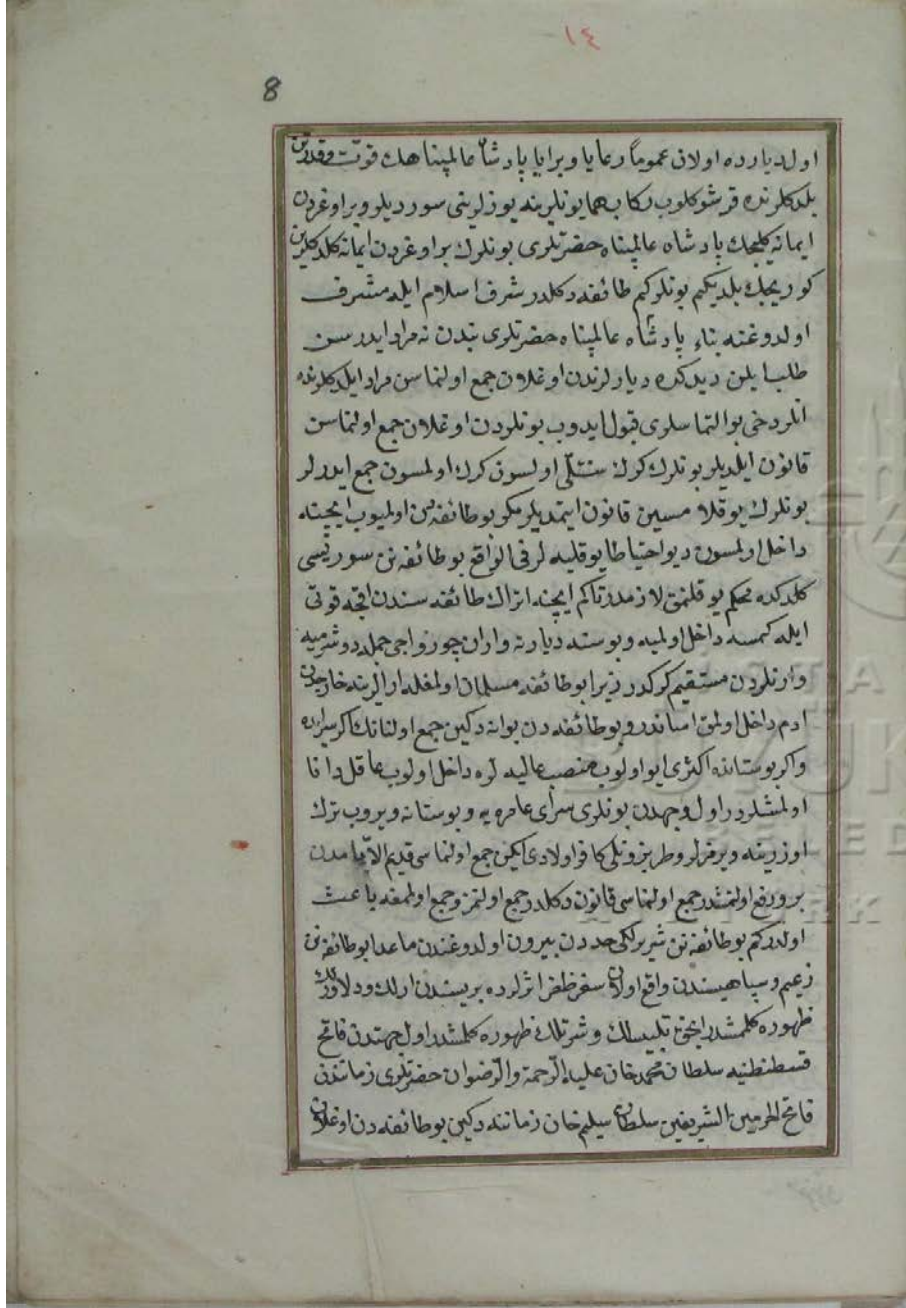 ١٤
8
اول دیارده اولان عموماً رعایا و برایا پادشاه عالمپناهك قوّت و قدرتن
بلدكلرنده قرشو كلوب ركاب همایونلرینه یوزلرینی سوردیلر و بر اوغردن
ایمانه كلیجك پادشاه عالمپناه حضرتلری بونلرك بر اوغردن ایمانه كلدكلرین
كوریجك بلدیكم بونلر كم طائفه دكلدر شرف اسلام ایله مشرف
اولدوغنه بناء پادشاه عالمپناه حضرتلری بندن نه مراد ایدرسن
طلب ایلن دیدكده دیارلرندن اوغلان جمع اولنماسن مراد ایلدكلرنده
انلر دخی بو التماسلری قبول ایدوب بونلردن اوغلان جمع اولنماسن
قانون ایلدیلر بونلرك كرك سنتلی اولسون كرك اولمسون جمع ایدرلر
بونلرك یوقلامسین قانون ایتمدیلر مكر بو طائفه دن اولمیوب ایچنه
داخل اولمسون دیو احتیاطا یوقلیه لر فی الواقع بو طائفه نن سوریسی
كلدكده محكم یوقلنمق لازمدر تاكم ایچنه اتراك طائفه سندن اقچه قوتی
ایله كمسه داخل اولمیه و بوسنه دیارنه واران چورواجی جمله دوشرمیه
وارنلردن مستقیم كركدر زیرا بو طائفه مسلمان اولمغله ارالرینه خارجدن
ادم داخل اولمق اساندر و بو طائفه دن بوانه دكین جمع اولنانك اكر سرایده
واكر بوستانده اكثری ایو اولوب منصب عالیه لره داخل اولوب عاقل دانا
اولمشلردر اول وجهدن بونلری سرای عامره یه و بوستانه ویروب ترك
اوزرینه ویرمزلر و طربزونلی كافر اولادی ایكن جمع اولنماسی قدیم الایامدن
برو رفع اولنمشدر جمع اولنماسی قانون دكلدر جمع اولنمز و جمع اولنمغه باعث
اولدر كم بو طائفه نن شریرلكی حددن بیرون اولدوغندن ماعدا بو طائفه نن
زعیم و سپاهیسندن واقع اولان سفر ظفر اثرلرده بریسندن ارلك و دلاورلك
ظهوره كلمشدر انجق تلبیسلك و شرتلك ظهوره كلمشدر اول جهتدن فاتح
قسطنطنیه سلطان محمد خان علیه الرحمة والرضوان حضرتلری زماندن
فاتح الحرمین الشریفین سلطان سلیم خان زماننه دكین بو طائفه دن اوغلان